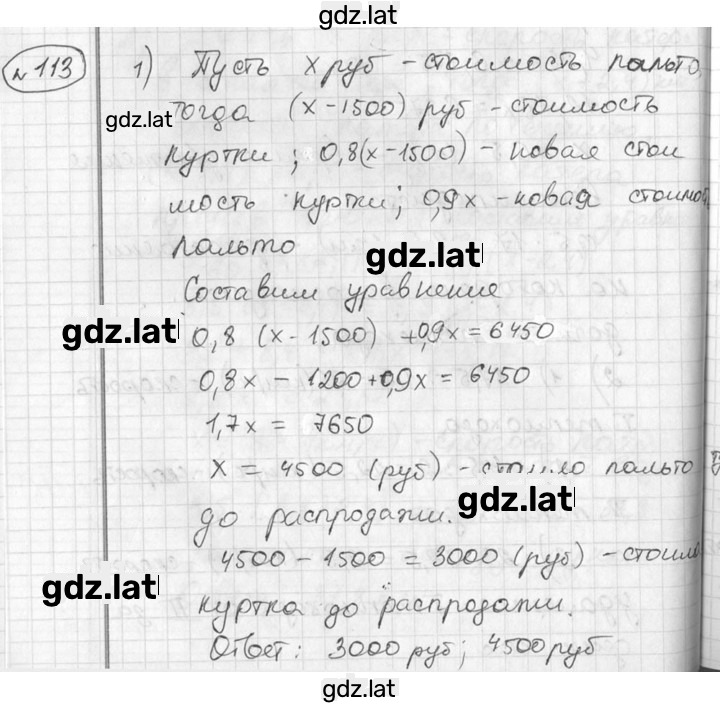 gdz.lat
№113 1) Пусть х руб - стоимость пальто,
тогда (х - 1500) руб - стоимость
gdz.lat
куртки; 0,8(х - 1500) - новая стои
мость куртки; 0,9х - новая стоимос
пальто
gdz.lat
Составим уравнение
gdz.lat
0,8 (х - 1500) + 0,9х = 6450
0,8х - 1200 + 0,9х = 6450
1,7х = 7650
х = 4500 (руб) - стоило пальто
gdz.lat
до распродажи.
4500 - 1500 = 3000 (руб) - стоила
gdz.lat
куртка до распродажи.
Ответ: 3000 руб; 4500 руб
gdz.lat